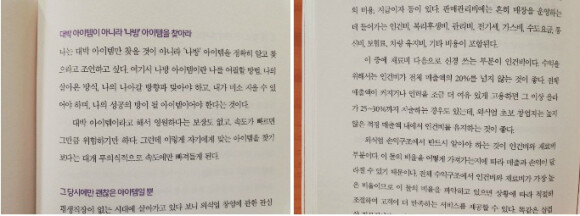 대박 아이템이 아니라 '나방' 아이템을 찾아라
나는 대박 아이템만 찾을 것이 아니라 '나방' 아이템을 정확히 알고 찾
으라고 조언하고 싶다. 여기서 나방 아이템이란 나를 어필할 방법, 나의
살아온 방식, 나의 나아갈 방향과 맞아야 하고, 내가 녹아 있을 수 있
어야 하며, 나의 성공의 방이 될 아이템이어야 한다는 것이다.
대박 아이템이라고 해서 영원하다는 보장도 없고, 속도가 빠르면
그만큼 위험하기만 하다. 그런데 이렇게 자기에게 맞는 아이템을 찾기
보다는 대개 무의식적으로 속도에만 빠져들게 된다.
그 당시에만 괜찮은 아이템일 뿐
평생직장이 없는 시대에 살아가고 있다 보니 외식업 창업에 관한 관심
외 비용, 지급이자 등이 있다. 판매관리비에는 흔히 매장을 운영하는
데 들어가는 인건비, 복리후생비, 관리비, 전기세, 가스비, 수도요금, 통
신비, 보험료, 차량 유지비, 기타 비용이 포함된다.
이 중에 재료비 다음으로 신경 쓰는 부분이 인건비이다. 수익을
위해서는 인건비가 전체 매출액의 20%를 넘지 않는 것이 좋다. 간혹
매출액이 커지거나 인력을 조금 더 여유 있게 고용하면 그 이상 올라
가 25~30%까지 지출하는 경우도 있는데, 외식업 초보 창업자는 높지
않은 적정 매출액 내에서 인건비를 유지하는 것이 좋다.
외식업 손익구조에서 반드시 알아야 하는 것이 인건비와 재료비
부분이다. 이 둘의 비율을 어떻게 가져가는지에 따라 매출과 손익이 달
라질 수 있기 때문이다. 전체 수익구조에서 인건비와 재료비가 가장 높
은 비율이므로 이 둘의 비율을 파악하고 있으면 상황에 따라 적절히
조절하여 고객에게 더 만족하는 서비스를 제공할 수 있다. 똑같은 삼겹